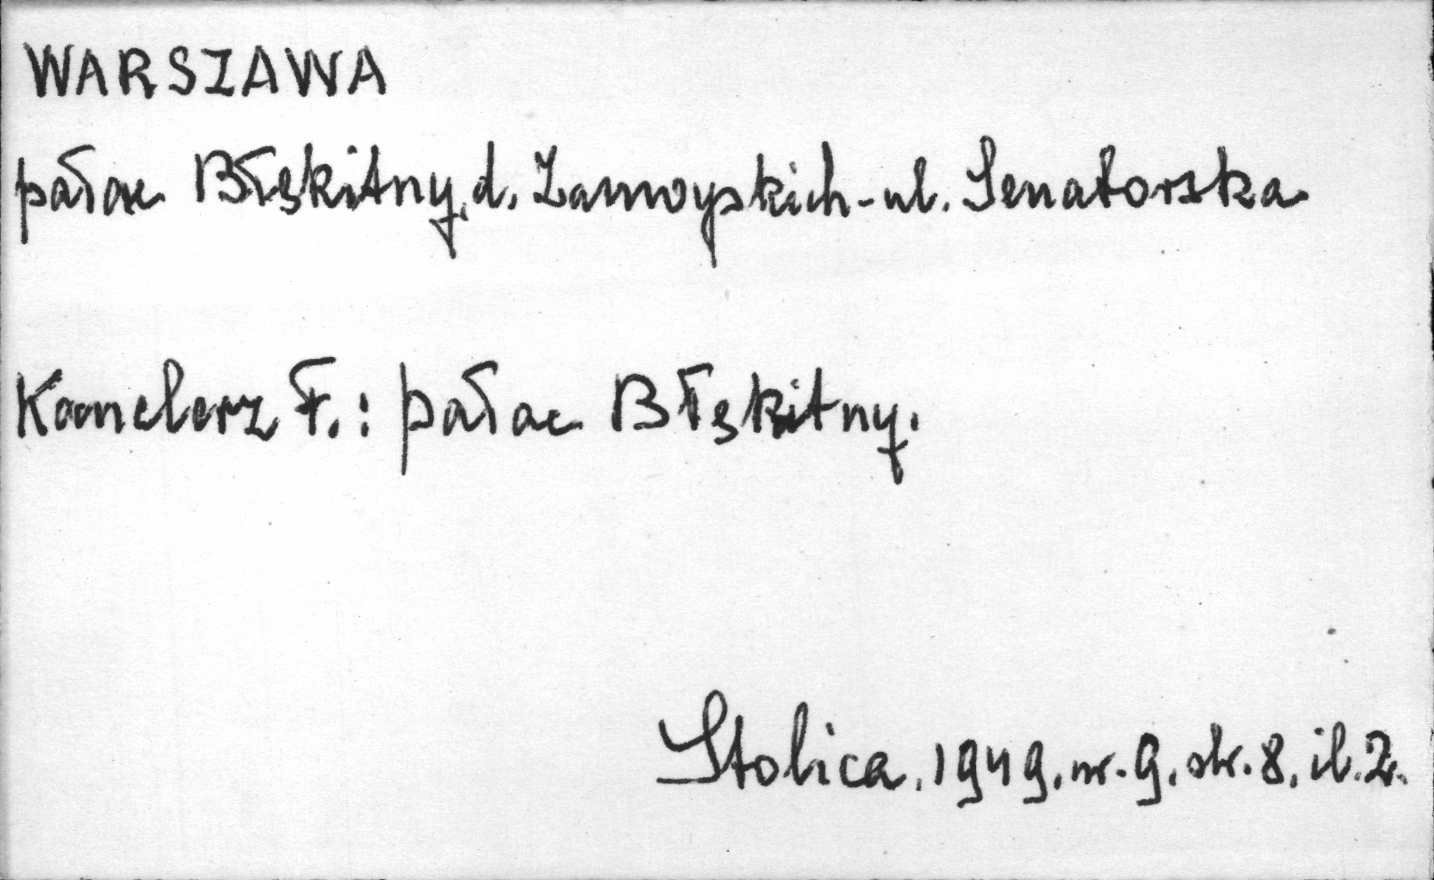 WARSZAWA
pałac Błękitny, d. Zamoyskich - ul. Senatorska
Kanclerz F.: pałac Błękitny.
Stolica, 1949, nr. 9, str. 8, il. 2.